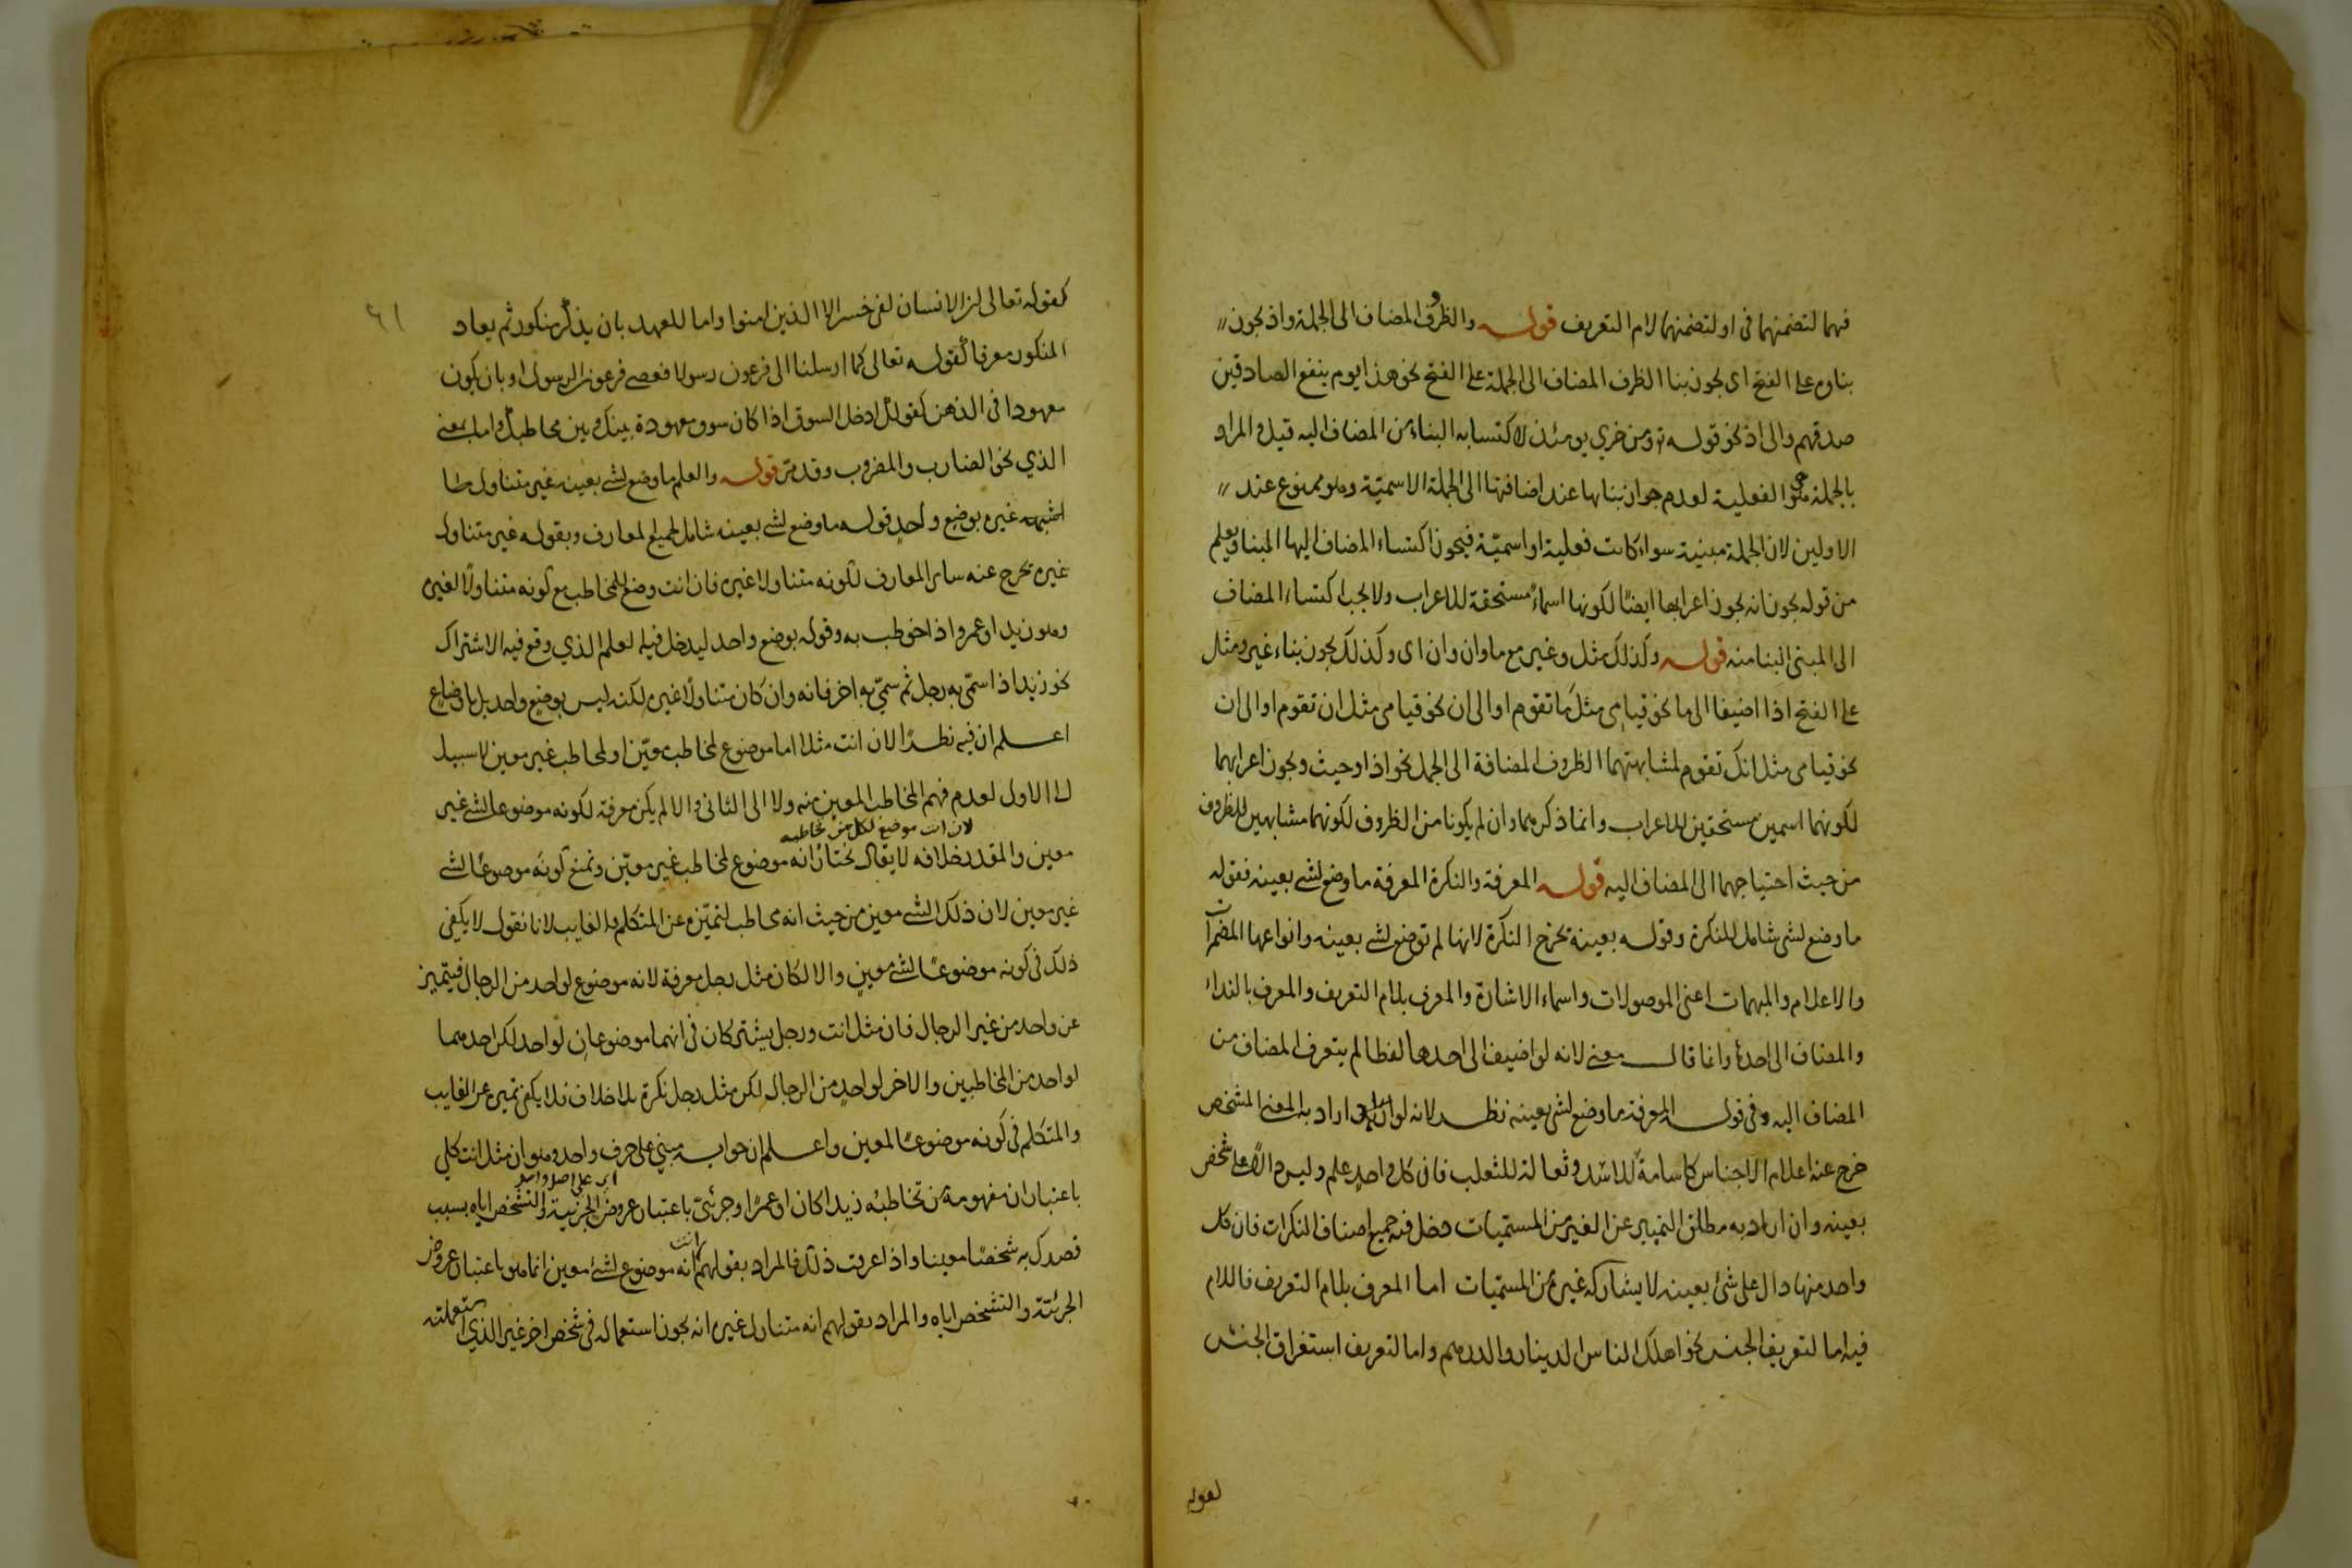 فيهما لتضمنهما في او لتضمنهما لام التعريف قوله والظروف المضاف الى الجملة واذ يجوز
بناوه على الفتح اى يجوز بنا الظرف المضاف الى الجملة على الفتح نحو هذا يوم ينفع الصادقين
صدقهم والى اذ نحو قوله تع ومن خزي يومئذ لاكتسابه البناء من المضاف اليه قيل المراد
بالجملة هي الفعلية لعدم جواز بنايها عند اضافتها الى الجملة الاسمية وهو ممنوع عند
الاولين لان الجملة مبنية سواء كانت فعلية او اسمية فيجوز اكتساء المضاف اليها البنا ويعلم
من قوله يجوز انه يجوز اعرابها ايضا لكونها اسماء مستحقة للاعراب ولا يجب اكتساء المضاف
الى المبنى البنا منه قوله وكذلك مثل وغير مع ما وان وان اى وكذلك يجوز بناء غير ومثل
على الفتح اذا اضيفا الى ما نحو قيامى مثل ما تقوم او الى ان نحو قيامى مثل ان تقوم او الى ان
نحو قيامى مثل انك تقوم لمشابهتهما الظروف المضافة الى الجمل نحو اذ او حيث ويجوز اعرابهما
لكونهما اسمين مستحقين للاعراب وانما ذكرهما وان لم يكونا من الظروف لكونهما مشابهين للظروف
من حيث احتياجهما الى المضاف اليه قوله المعرفة والنكرة المعرفة ما وضع لشى بعينه فقوله
ما وضع لشى شامل للنكرة وقوله بعينه تخرج النكرة لانها لم توضع لشى بعينه وانواعها المضمرات
والاعلام والمبهمات اعنى الموصولات واسماء الاشارة والمعرف بلام التعريف والمعرف بالنداء
والمضاف الى احدها وانما قال معنى لانه لو اضيف الى احدها لفظا لم يتعرف المضاف من
المضاف اليه وفى قوله المعرفة ما وضع لشى بعينه نظر لانه لو اراد به المعنى المشخص
خرج عنه اعلام الاجناس كاسامة للاسد وثعالة للثعلب فان كل واحد علم وليس دالا على شخص
بعينه وان اراد به مطلق التمييز عن الغير من المسميات دخل فيه جميع اصناف النكرات فان كل
واحد منها دال على شئ بعينه لا يشاركه غيره من المسميات اما المعرف بلام التعريف فاللام
فيه اما لتعريف الجنس نحو اهلك الناس الدينار والدرهم واما لتعريف استغراق الجنس
لقوله
٦١
كقوله تعالى ان الانسان لفى خسر الا الذين امنوا واما للعهد بان يذكر منكور ثم يعاد
المنكور معرفا كقوله تعالى كما ارسلنا الى فرعون رسولا فعصى فرعون الرسول او بان يكون
معهودا فى الذهن كقولك ادخل السوق اذا كان سوق معهودة بينك وبين مخاطبك واما بمعنى
الذي نحو الضارب والمضروب وقد مر قوله والعلم ما وضع لشى بعينه غير متناول
غيره بوضع واحد قوله ما وضع لشى بعينه شامل لجميع المعارف وبقوله غير متناول
غيره يخرج عنه ساير المعارف لكونه متناولا غيره فان انت وضع للمخاطب مع كونه متناولا لغيره
وهو زيد او عمرو اذا خوطب به وقوله بوضع واحد ليدخل فيه العلم الذي وقع فيه الاشتراك
نحو زيد اذا سمى به رجل ثم سمى به اخر فانه وان كان متناولا غيره لكنه ليس بوضع واحد بل باوضاع
اعلم ان فيه نظرا لان انت مثلا اما موضوع لمخاطب معين او لمخاطب غير معين لا سبيل
الى الاول لعدم فهم المخاطب المعين منه ولا الى الثانى والا لم يكن معرفة لكونه موضوعا لشى غير
لان انت موضوع لكل من تخاطبه
معين والمقدر خلافه لا يقال نختار انه موضوع لمخاطب غير معين ونمنع كونه موضوعا لشى
غير معين لان ذلك الشى معين من حيث انه مخاطب لتميزه عن المتكلم والغايب لانا نقول لا يكفى
ذلك فى كونه موضوعا لشى معين والا لكان مثل رجل معرفة لانه موضوع لواحد من الرجال فيتميز
عن واحد من غير الرجال فان مثل انت ورجل يشتركان فى انهما موضوعان لواحد لكن احدهما
لواحد من المخاطبين والاخر لواحد من الرجال لكن مثل رجل نكرة بلا خلاف فلا يكفى تميزه عن الغايب
والمتكلم فى كونه موضوعا لمعين واعلم ان جوابه مبني على حرف واحد وهو ان مثل انت كلي
اى على اصل واحد
باعتبار ان مفهومه من تخاطبه زيدا كان او عمرا وجزئى باعتبار عروض الجزئية والتشخص اياه بسبب
قصدك به شخصا معينا واذا عرفت ذلك فالمراد بقولهم انت انه موضوع لشئ معين انما هو باعتبار عروض
الجزئية والتشخص اياه والمراد بقولهم انه متناول غيره انه يجوز استعماله فى شخص اخر غير الذي استعملته